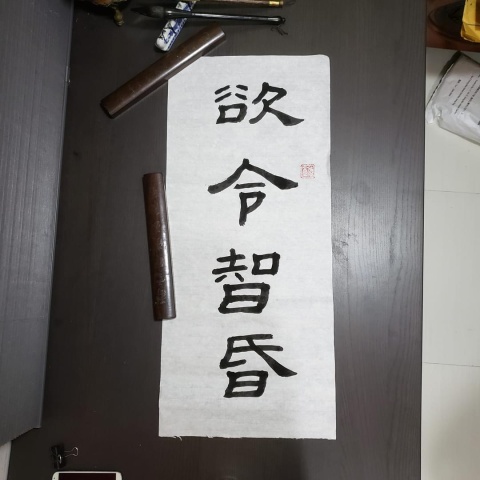 欲令智昏